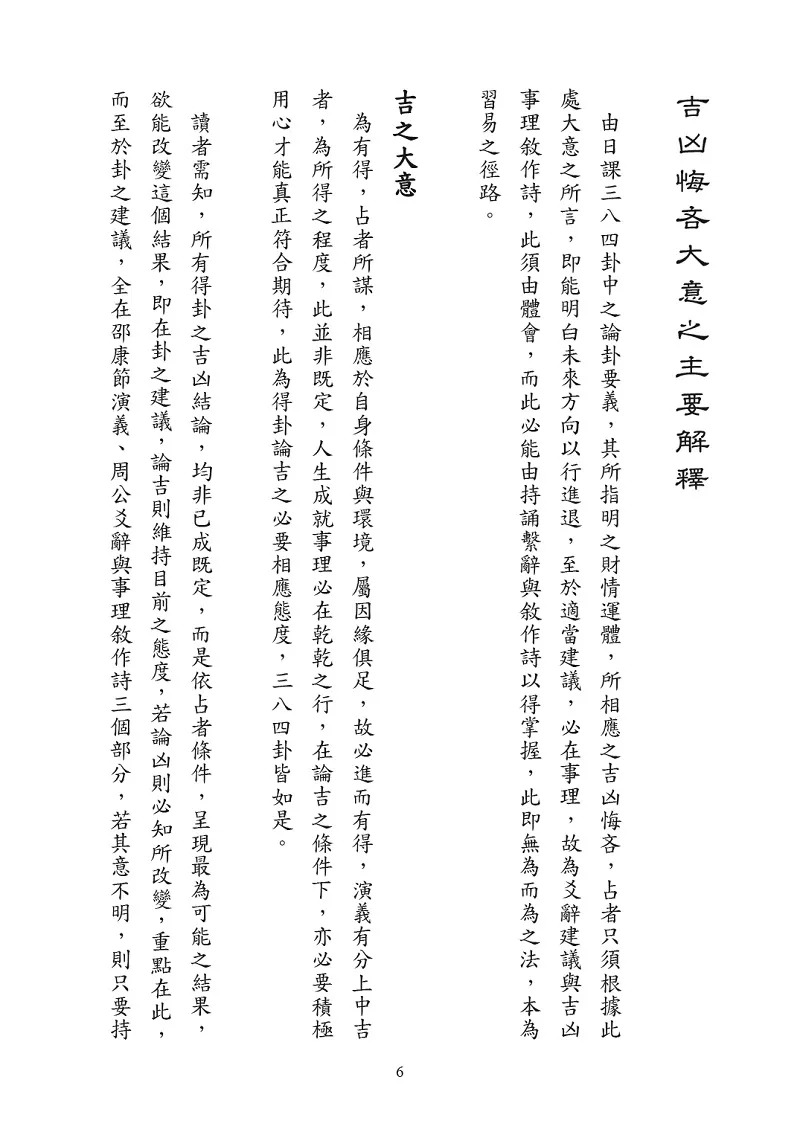 吉凶悔吝大意之主要解釋
由日課三八四卦中之論卦要義，其所指明之財情運體，所相應之吉凶悔吝，占者只須根據此
處大意之所言，即能明白未來方向以行進退，至於適當建議，必在事理，故為爻辭建議與吉凶
事理敘作詩，此須由體會，而此必能由持誦繫辭與敘作詩以得掌握，此即無為而為之法，本為
習易之徑路。
吉之大意
為有得，占者所謀，相應於自身條件與環境，屬因緣俱足，故必進而有得，演義有分上中吉
者，為所得之程度，此並非既定，人生成就事理必在乾乾之行，在論吉之條件下，亦必要積極
用心才能真正符合期待，此為得卦論吉之必要相應態度，三八四卦皆如是。
讀者需知，所有得卦之吉凶結論，均非已成既定，而是依占者條件，呈現最為可能之結果，
欲能改變這個結果，即在卦之建議，論吉則維持目前之態度，若論凶則必知所改變，重點在此，
而至於卦之建議，全在邵康節演義、周公爻辭與事理敘作詩三個部分，若其意不明，則只要持
6